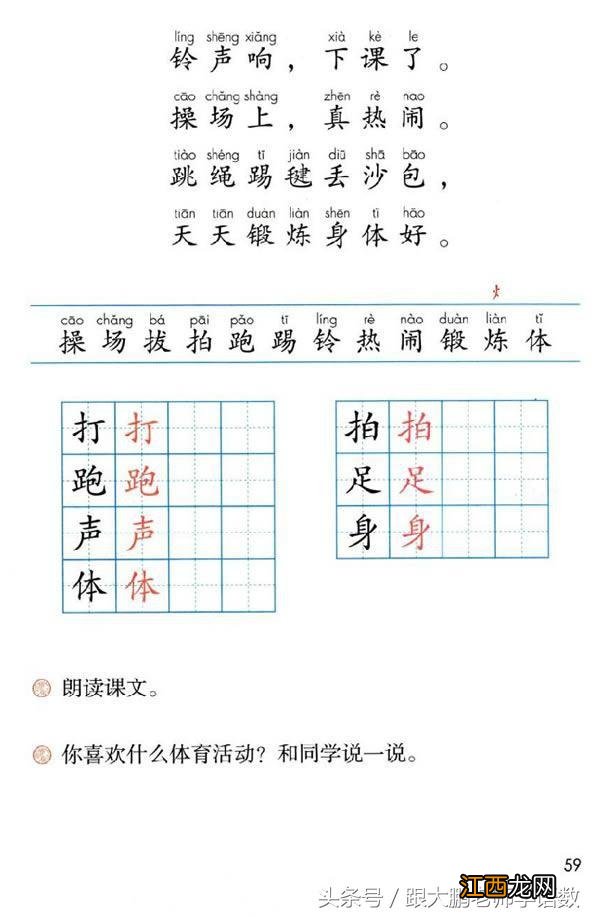 líng shēng xiǎng xià kè le
铃声响，下课了。
cāo chǎng shàng zhēn rè nao
操场上，真热闹。
tiào shéng tī jiàn diū shā bāo
跳绳踢毽丢沙包，
tiān tiān duàn liàn shēn tǐ hǎo
天天锻炼身体好。
cāo chǎng bá pāi pǎo tī líng rè nào duàn liàn tǐ
操场拔拍跑踢铃热闹锻炼体
打打 拍拍
跑跑 足足
声声 身身
体体
朗读课文。
你喜欢什么体育活动？和同学说一说。
59
江西龙网
头条号／跟大鹏老师学语数